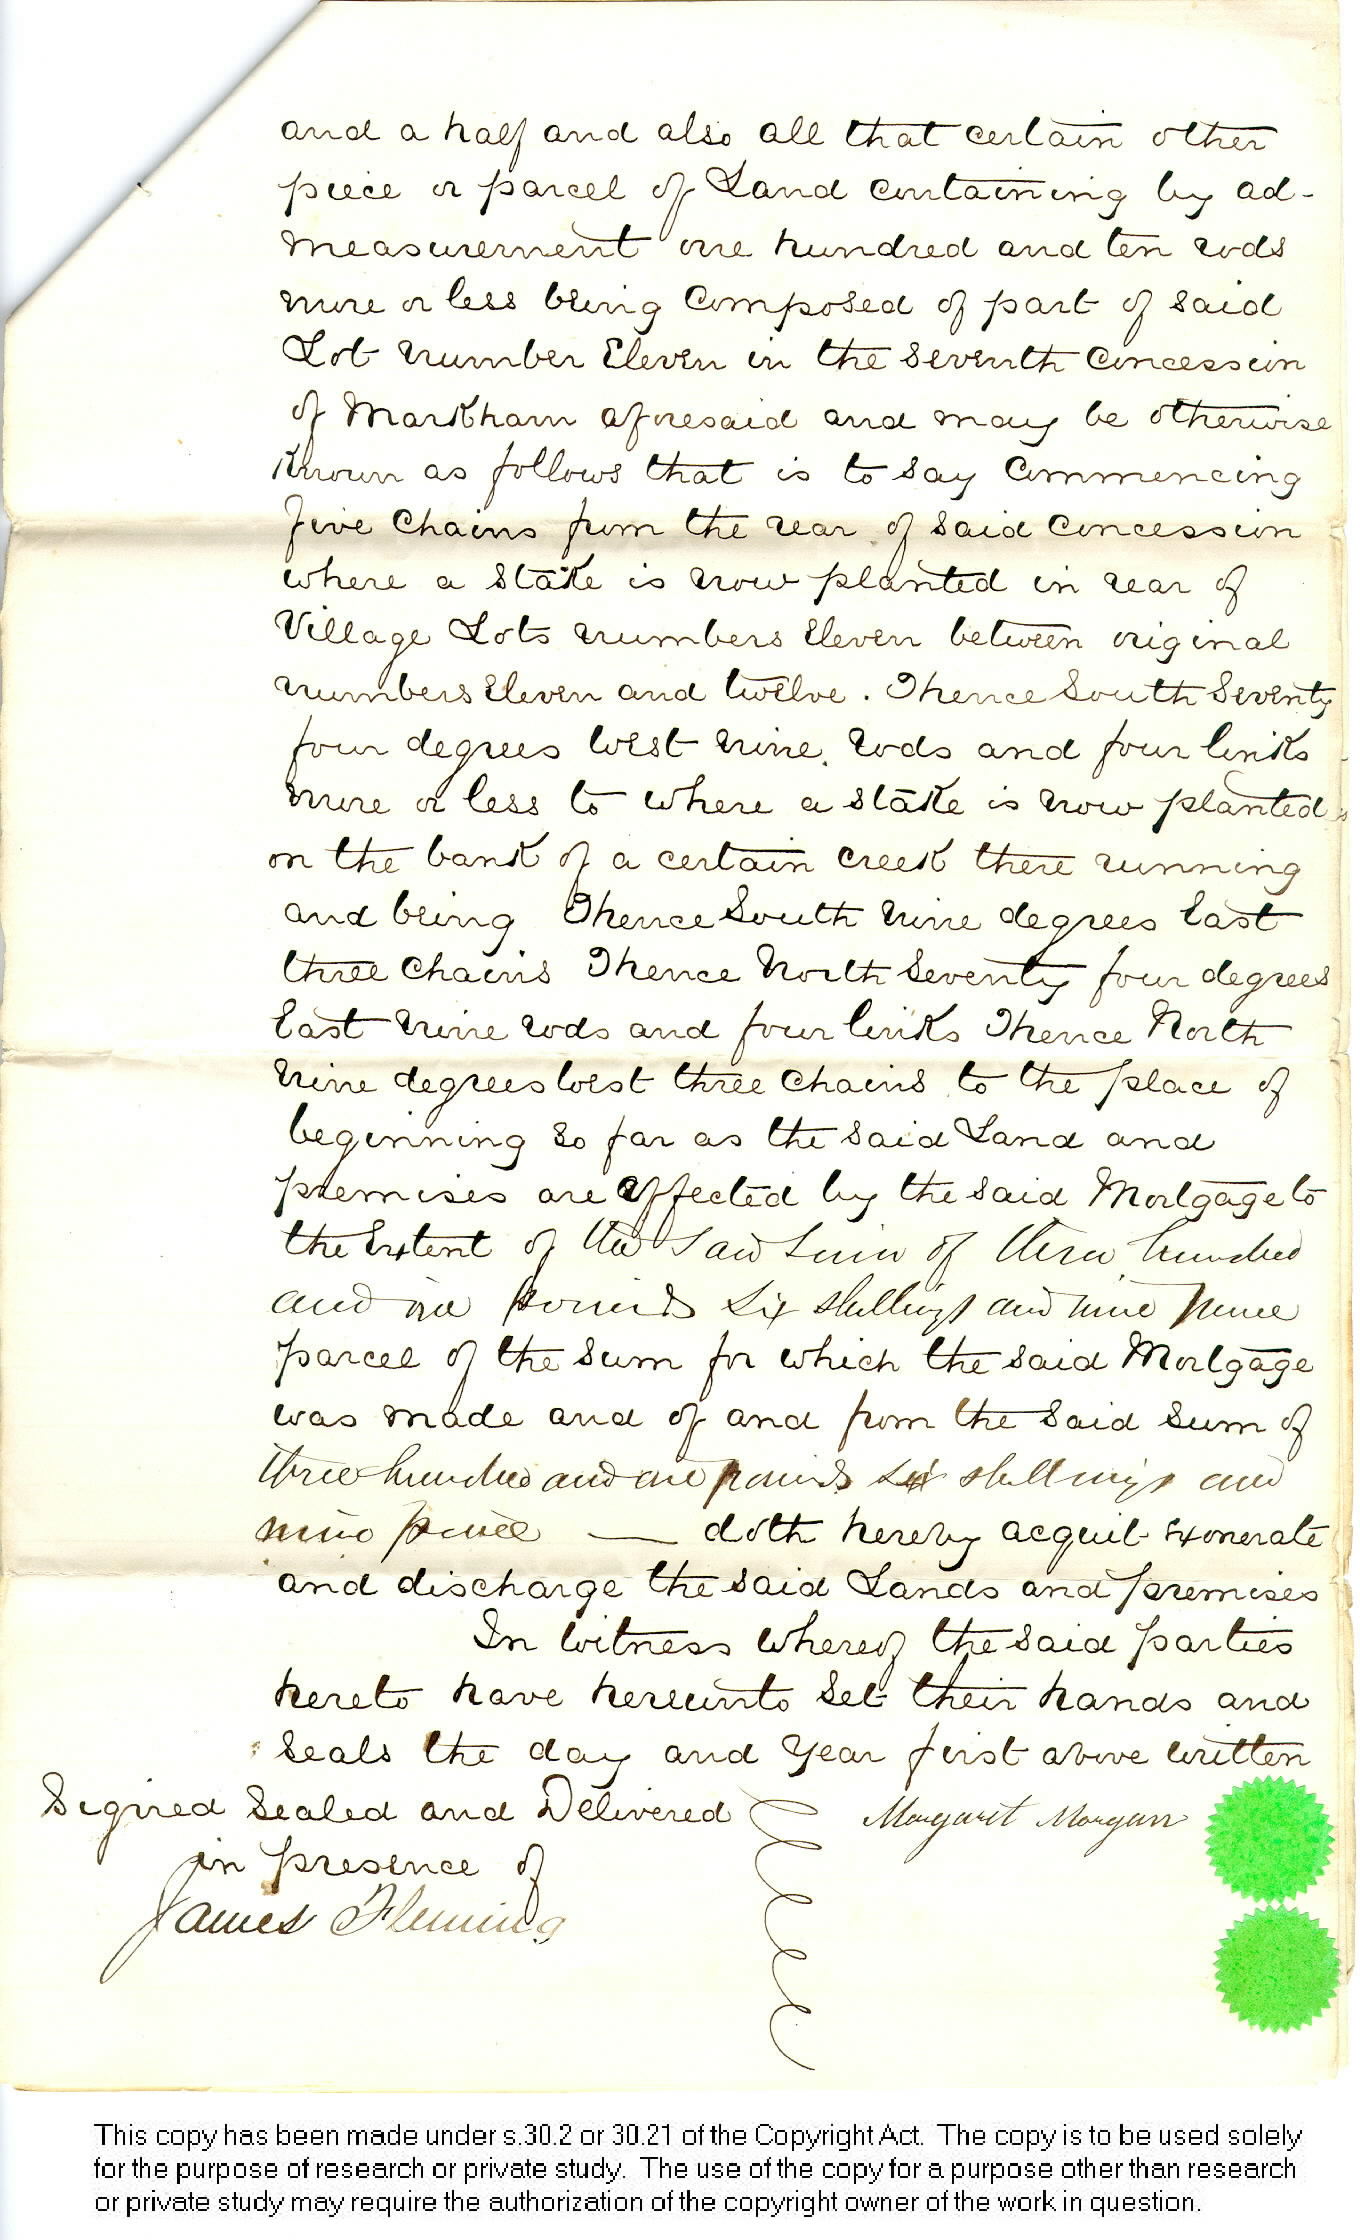 and a half and also all that certain other
piece or parcel of Land containing by ad-
measurement one hundred and ten rods
more or less being Composed of part of said
Lot number Eleven in the seventh Concession
of Markham aforesaid and may be otherwise
Known as follows that is to say Commencing
five Chains from the rear of said Concession
where a Stake is now planted in rear of
Village Lots numbers Eleven between original
numbers Eleven and twelve. Thence South Seventy
four degrees West nine rods and four links
more or less to where a stake is now planted
on the bank of a certain Creek there running
and being Thence South nine degrees East
three Chains Thence North Seventy four degrees
East nine rods and four links Thence North
nine degrees West three Chains to the place of
beginning so far as the said Land and
premises are affected by the said Mortgage to
the Extent of the said sum of three hundred
and one pounds six shillings and nine pence
parcel of the sum for which the said Mortgage
was made and of and from the said sum of
three hundred and one pounds six shillings and
nine pence — doth hereby acquit Exonerate
and discharge the said Lands and premises
In witness whereof the said parties
hereto have hereunto set their hands and
seals the day and Year first above written
Signed Sealed and Delivered
in presence of
James Fleming
Margaret Morgan
This copy has been made under s.30.2 or 30.21 of the Copyright Act. The copy is to be used solely
for the purpose of research or private study. The use of the copy for a purpose other than research
or private study may require the authorization of the copyright owner of the work in question.